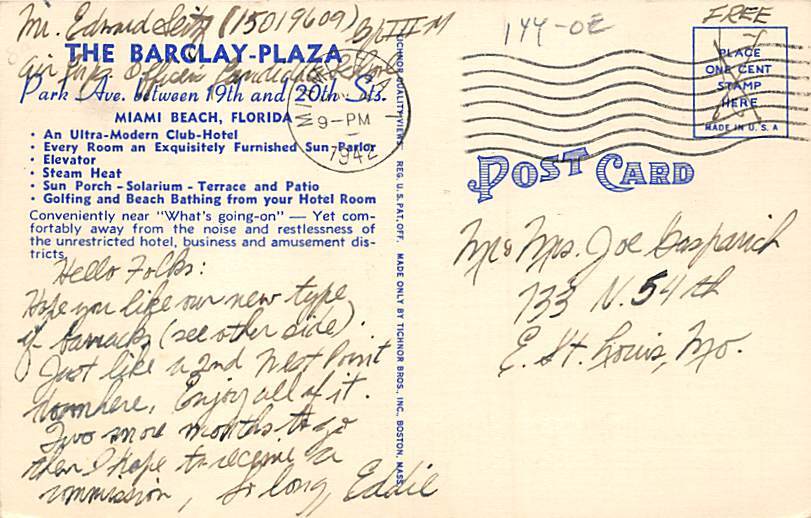 Mr. Edward Seitz (15019609)
THE BARCLAY-PLAZA
Air Officer Candidate
Park Ave. between 19th and 20th Sts.
MIAMI BEACH, FLORIDA
• An Ultra-Modern Club-Hotel
• Every Room an Exquisitely Furnished Sun Parlor
• Elevator
• Steam Heat
• Sun Porch - Solarium - Terrace and Patio
• Golfing and Beach Bathing from your Hotel Room
Conveniently near "What's going-on" — Yet com-
fortably away from the noise and restlessness of
the unrestricted hotel, business and amusement dis-
tricts.
Hello Folks:
Hope you like our new type
of barracks (see other side).
Just like a 2nd West Point
down here. Enjoy all of it.
Two more months to go
then I hope to receive a
commission, So long, Eddie
9-PM
1942
TICHNOR QUALITY VIEWS REG. U. S. PAT. OFF. MADE ONLY BY TICHNOR BROS., INC., BOSTON, MASS.
144-OE
FREE
PLACE
ONE CENT
STAMP
HERE
MADE IN U. S. A
POST CARD
Mr & Mrs. Joe Gasparich
733 N. 54th
E. St. Louis, Mo.